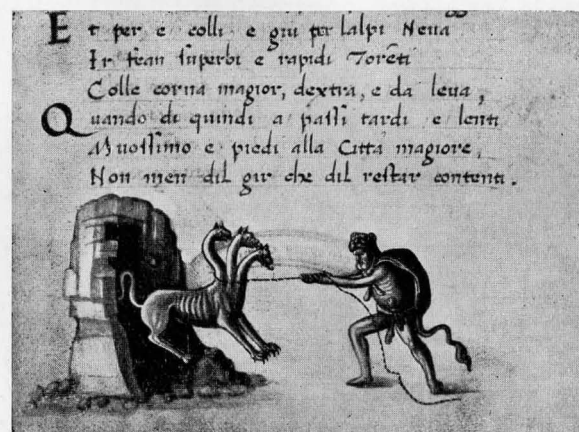 Et per e colli e giu per lalpi Neva
Ir fean superbi e rapidi Torēti
Colle corna magior, dextra, e da leva,
Quando di quindi a passi tardi e lenti
Muossimo e piedi alla Citta magiore,
Non men dil gir che dil restar contenti.